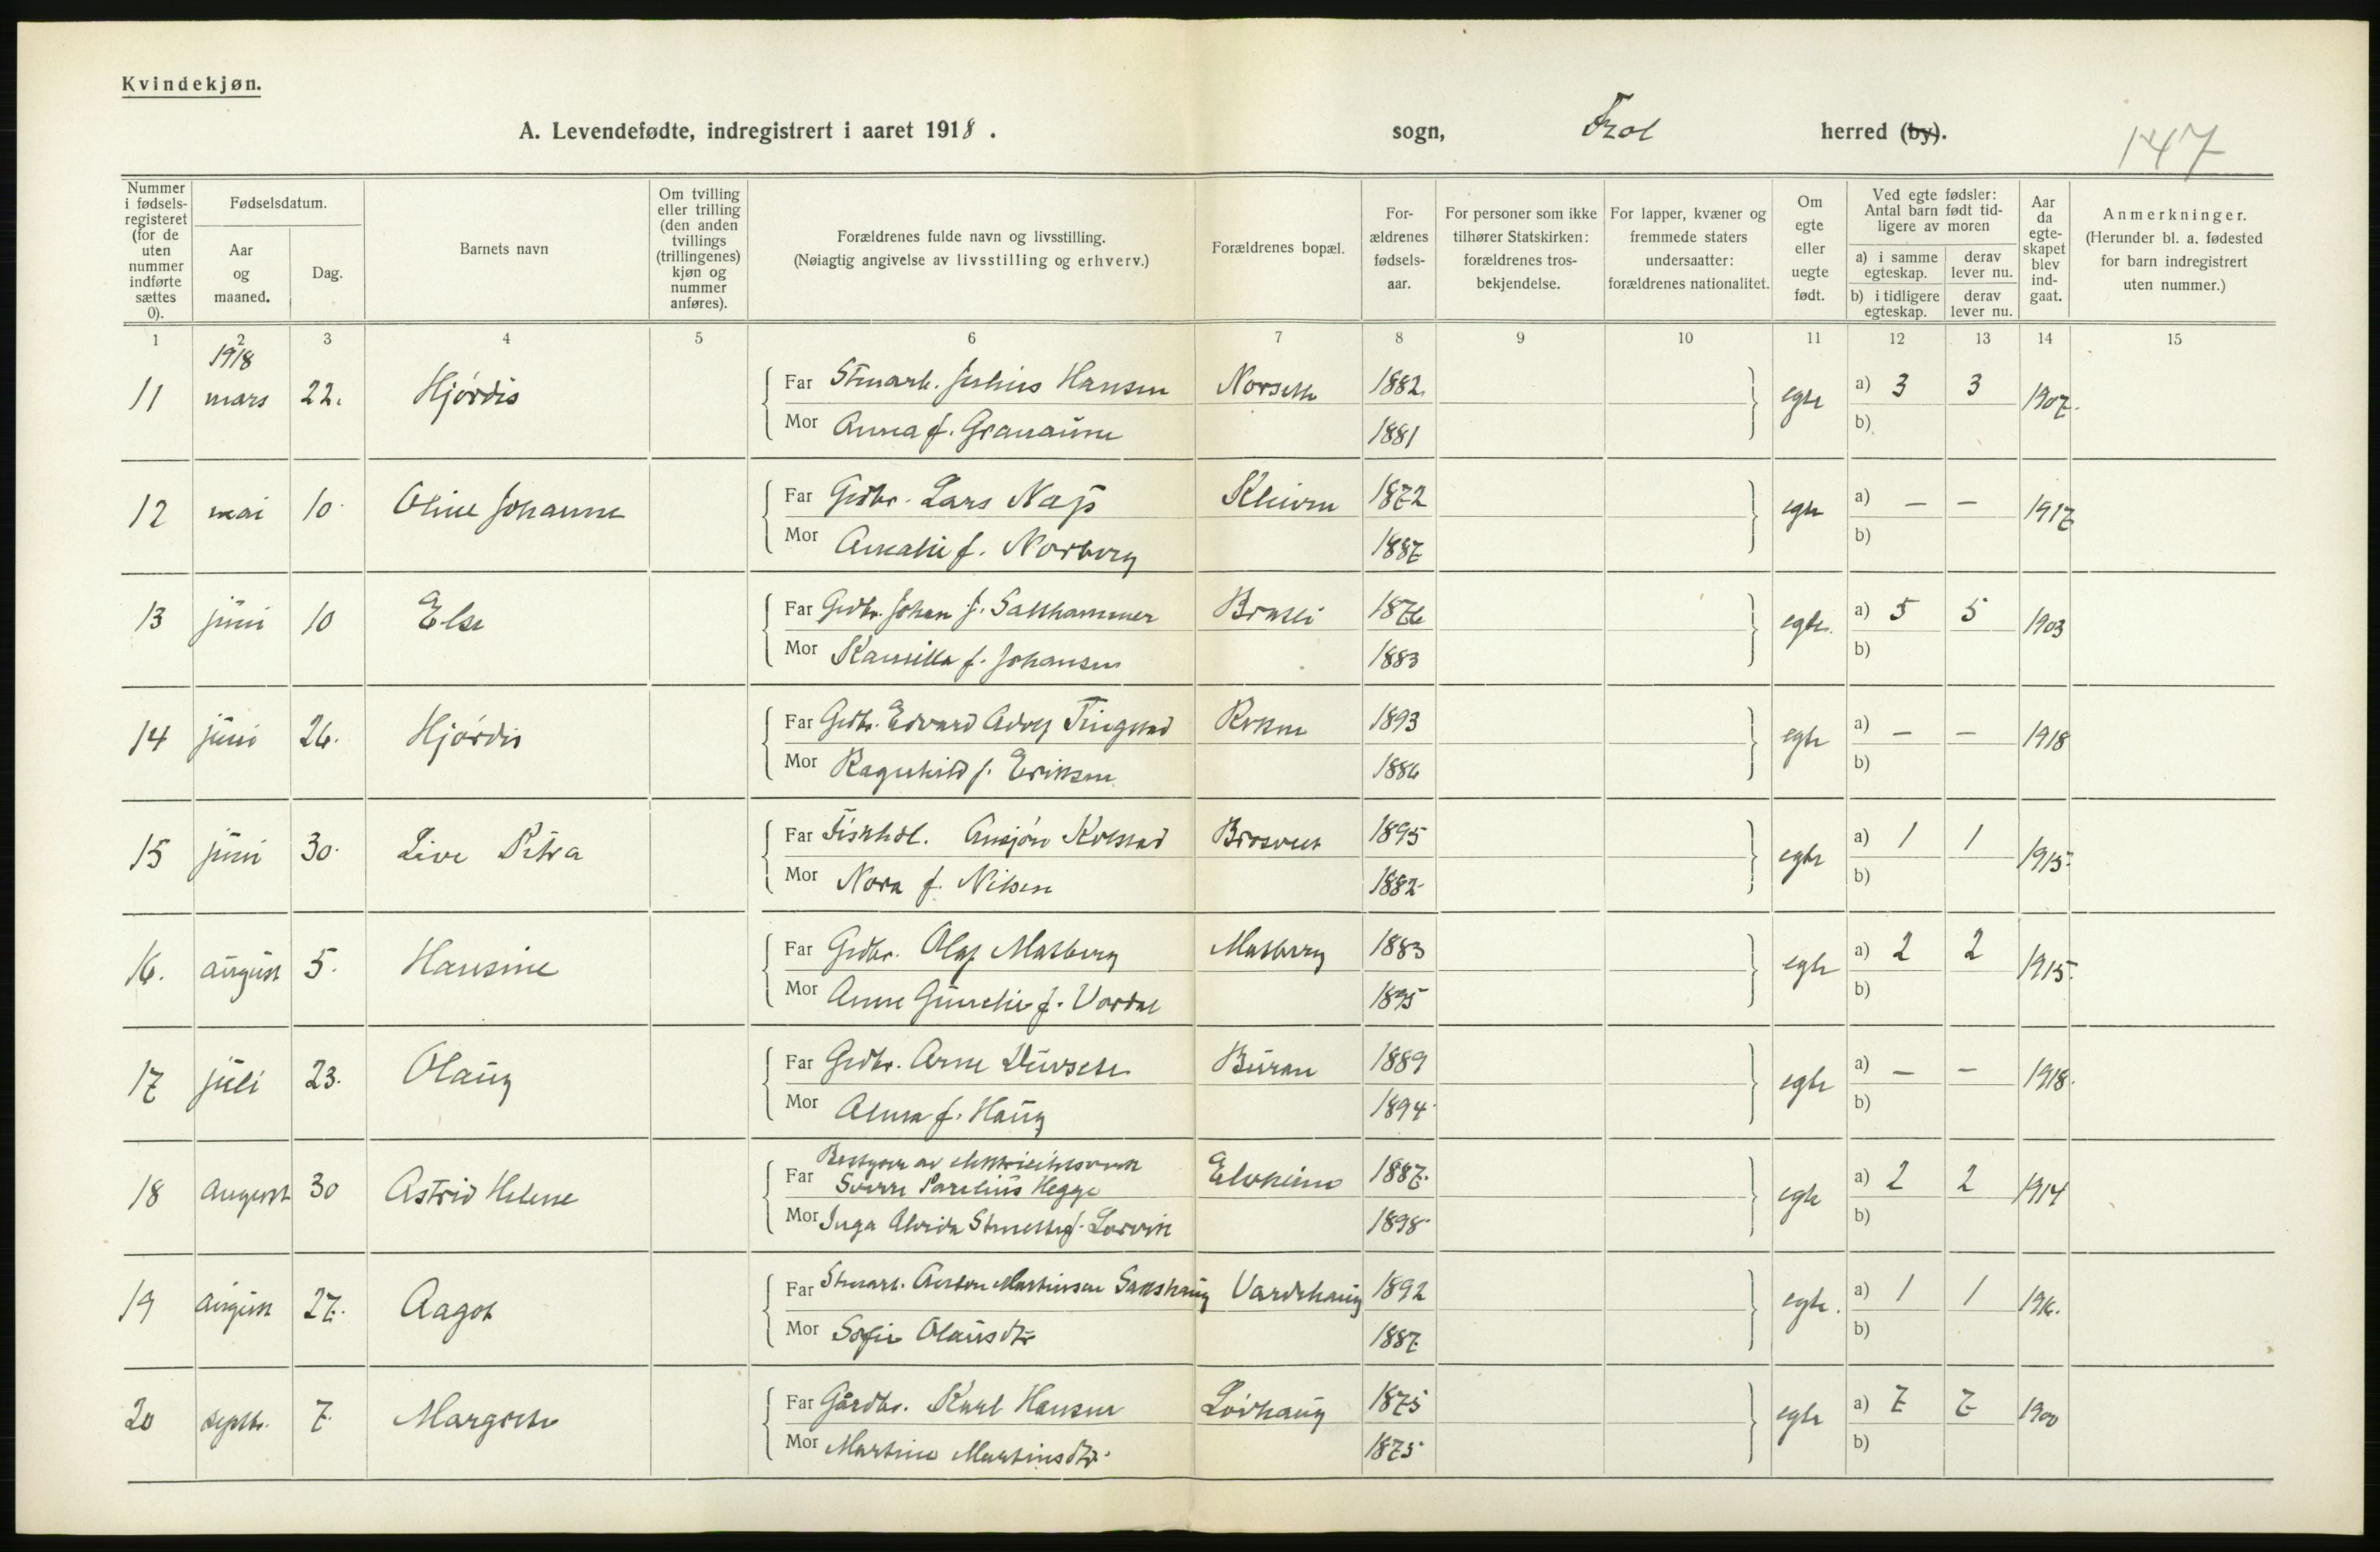 Kvindekjøn.
A. Levendefødte, indregistrert i aaret 1918.
sogn, Frol herred (by).
147
Nummer i fødselsregisteret (for de uten nummer indførte sættes 0).
Fødselsdatum.
Aar og maaned.
Dag.
Barnets navn
Om tvilling eller trilling (den anden tvillings (trillingenes) kjøn og nummer anføres).
Forældrenes fulde navn og livsstilling.
(Nøiagtig angivelse av livsstilling og erhverv.)
Forældrenes bopæl.
Forældrenes fødselsaar.
For personer som ikke tilhører Statskirken: forældrenes trosbekjendelse.
For lapper, kvæner og fremmede staters undersaatter: forældrenes nationalitet.
Om egte eller uegte født.
Ved egte fødsler: Antal barn født tidligere av moren
a) i samme egteskap. derav lever nu.
b) i tidligere egteskap. derav lever nu.
Aar da egteskapet blev indgaat.
Anmerkninger.
(Herunder bl. a. fødested for barn indregistrert uten nummer.)
1 2 3 4 5 6 7 8 9 10 11 12 13 14 15
1918
11 mars 22. Hjórdis Far Stenarb. Julius Hansen 1882 egte a) 3 3 1907.
Mor Anna f. Granaune 1881 b)
12 mai 10. Oline Johanne Far Grdbr. Lars Næss Kleiven 1872 egte a) — — 1917
Mor Amalie f. Norberg 1887 b)
13 juni 10 Else Far Grdbr. Johan J. Salthammer 1876 egte. a) 5 5 1903
Mor Kamilla f. Johansen 1883 b)
14 juni 26. Hjórdis Far Grdbr. Edvard Adolf Tingstad 1893 egte a) — — 1918
Mor Ragnhild f. Eriksen 1886 b)
15 juni 30. Live Petra Far Fiskhdl. Kolstad 1895 egte a) 1 1 1915.
Mor Nora f. Nilsen 1882 b)
16. august 5. Hansine Far Grdbr. Olaf Matberg Matberg 1883 egte a) 2 2 1915.
Mor Anne Gunelie f. Vordal 1895 b)
17 juli 23. Olaug Far Grdbr. Arne Buran 1889 egte a) — — 1918.
Mor Alma f. Haug 1894 b)
18 august 30 Astrid Helene Far Bestyrer av elektricitetsverk
Sverre Parelius Hegge Elvheim 1887. egte a) 2 2 1914
Mor Inga Alvida f. Lorvik 1898 b)
19 august 27. Aagot Far Stenarb. Anton Martinsen Sakshaug Vardehaug 1892 egte. a) 1 1 1916.
Mor Sofie Olausdtr 1887 b)
20 septbr. 7. Margrete Far Gårdbr. Karl Hansen Lóvhaug 1875 egte a) 7 7 1900
Mor Martine Martinsdtr. 1875 b)